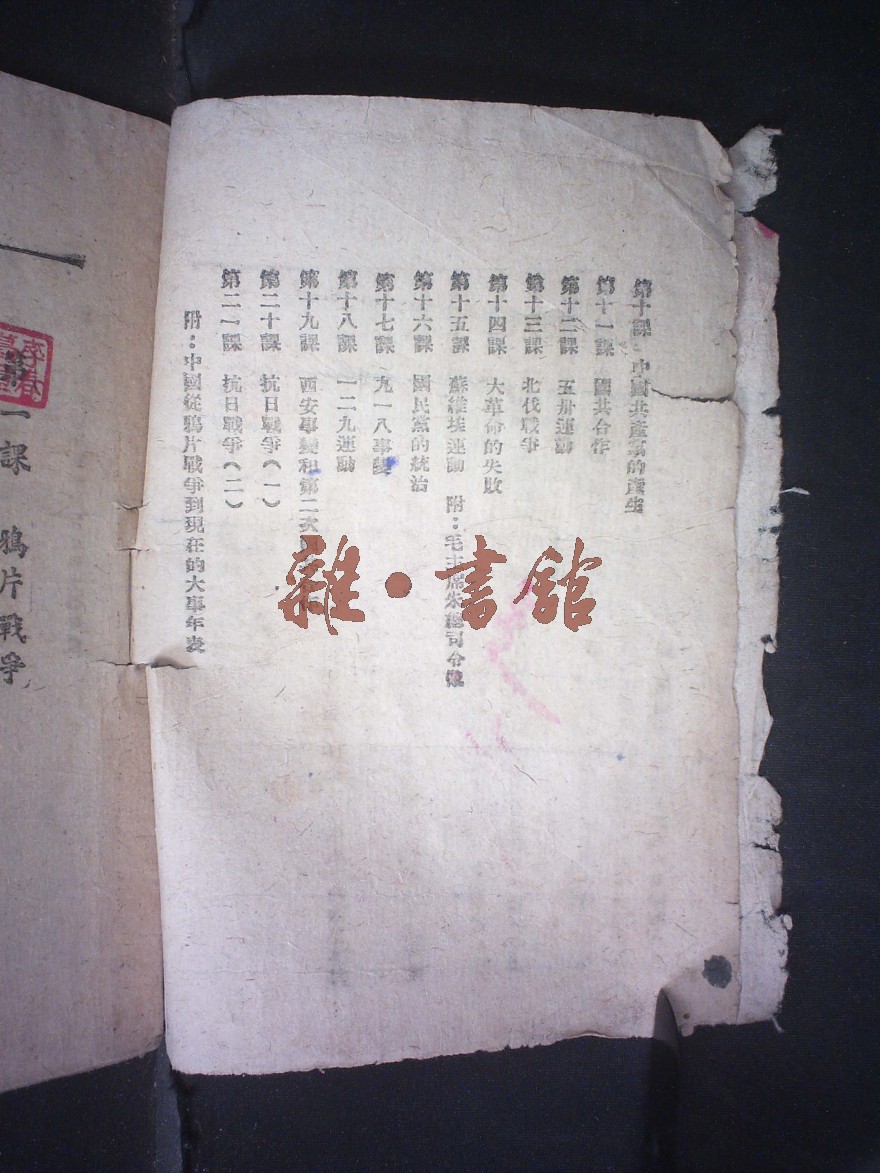 第十課 中國共產黨的產生
第十一課 國共合作
第十二課 五卅運動
第十三課 北伐戰爭
第十四課 大革命的失敗
第十五課 蘇維埃運動 附：毛主席朱總司令像
第十六課 國民黨的統治
第十七課 九一八事變
第十八課 一二九運動
第十九課 西安事變和第二次
第二十課 抗日戰爭（一）
第二一課 抗日戰爭（二）
附：中國從鴉片戰爭到現在的大事年表
一課 鴉片戰爭
雜·書館